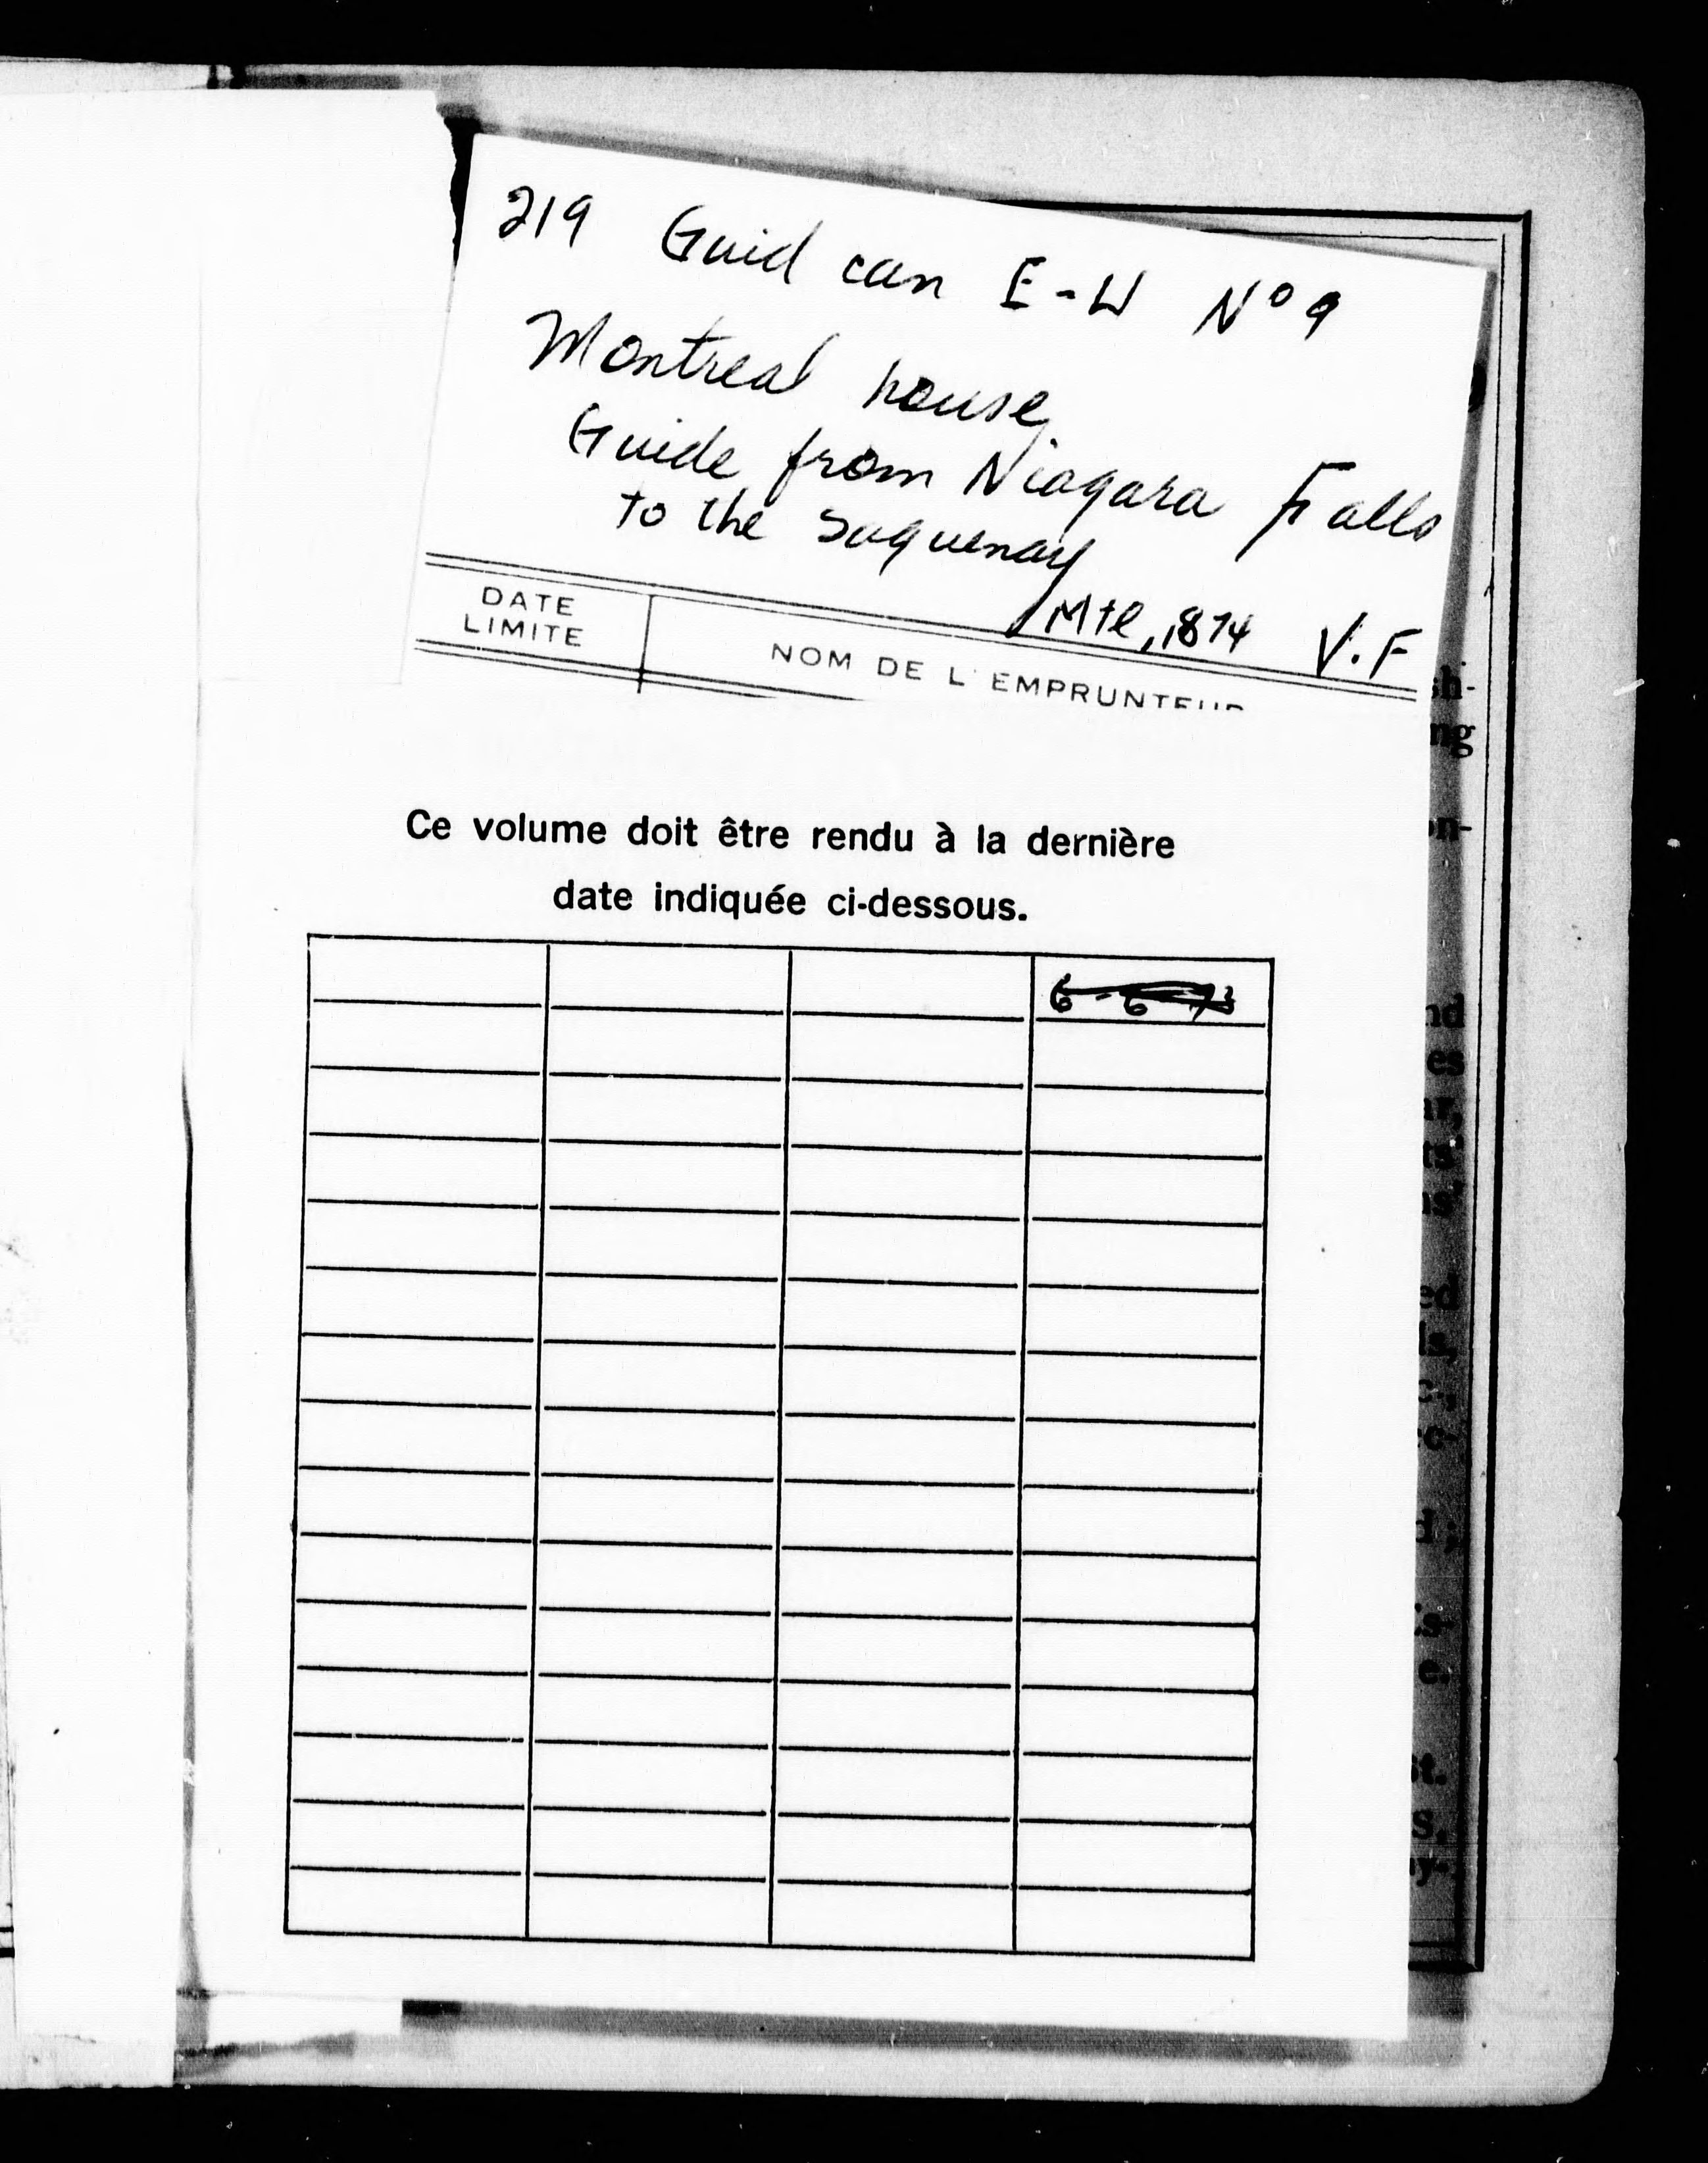 219 Guid can E-W Nº 9
Montreal house
Guide from Niagara Falls
to the Saguenay
Mtl, 1874 V.F
DATE
LIMITE
NOM DE L'EMPRUNTEUR
Ce volume doit être rendu à la dernière
date indiquée ci-dessous.
6-6-73
sh-
ng
on-
nd
es
ar,
ts
ns'
ed
ls,
c.,
st.
S.
y-